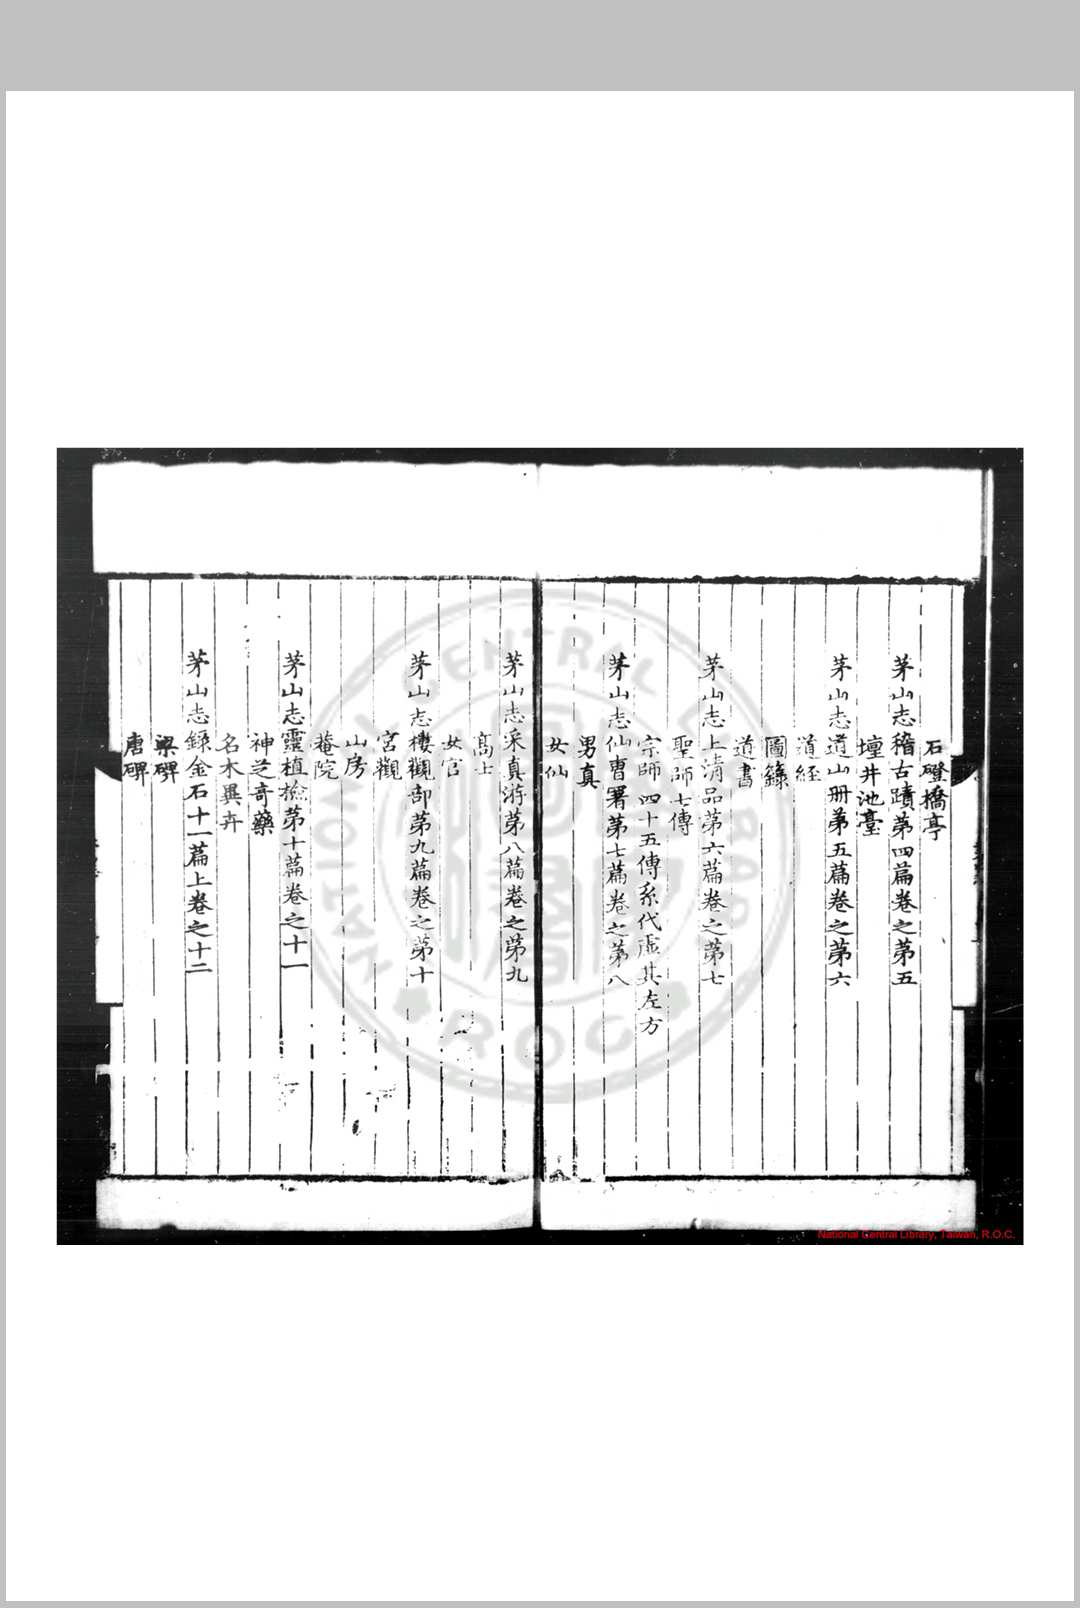 石磴橋亭
茅山志稽古蹟第四篇卷之第五
壇井池臺
茅山志道山冊第五篇卷之第六
道經
圖籙
道書
茅山志上清品第六篇卷之第七
聖師七傳
宗師四十五傳系代虛其左方
茅山志仙曹署第七篇卷之第八
男真
女仙
茅山志采真游第八篇卷之第九
高士
女官
茅山志樓觀部第九篇卷之第十
宮觀
山房
菴院
茅山志靈植檢第十篇卷之十一
神芝奇藥
名木異卉
茅山志錄金石十一篇上卷之十二
梁碑
唐碑
NATIONAL CENTRAL LIBRARY
R.O.C.
National Central Library, Taiwan, R.O.C.